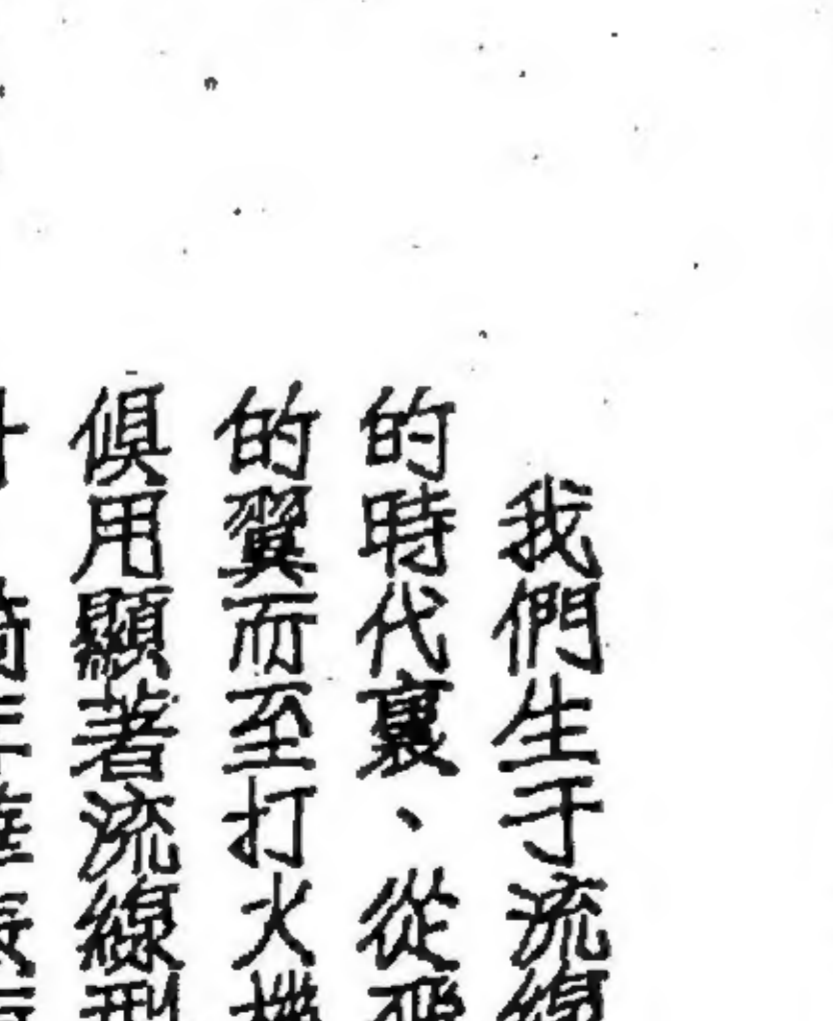 我們生于流線
的時代裏、從飛
的翼而至打火機
俱用顯著流線型